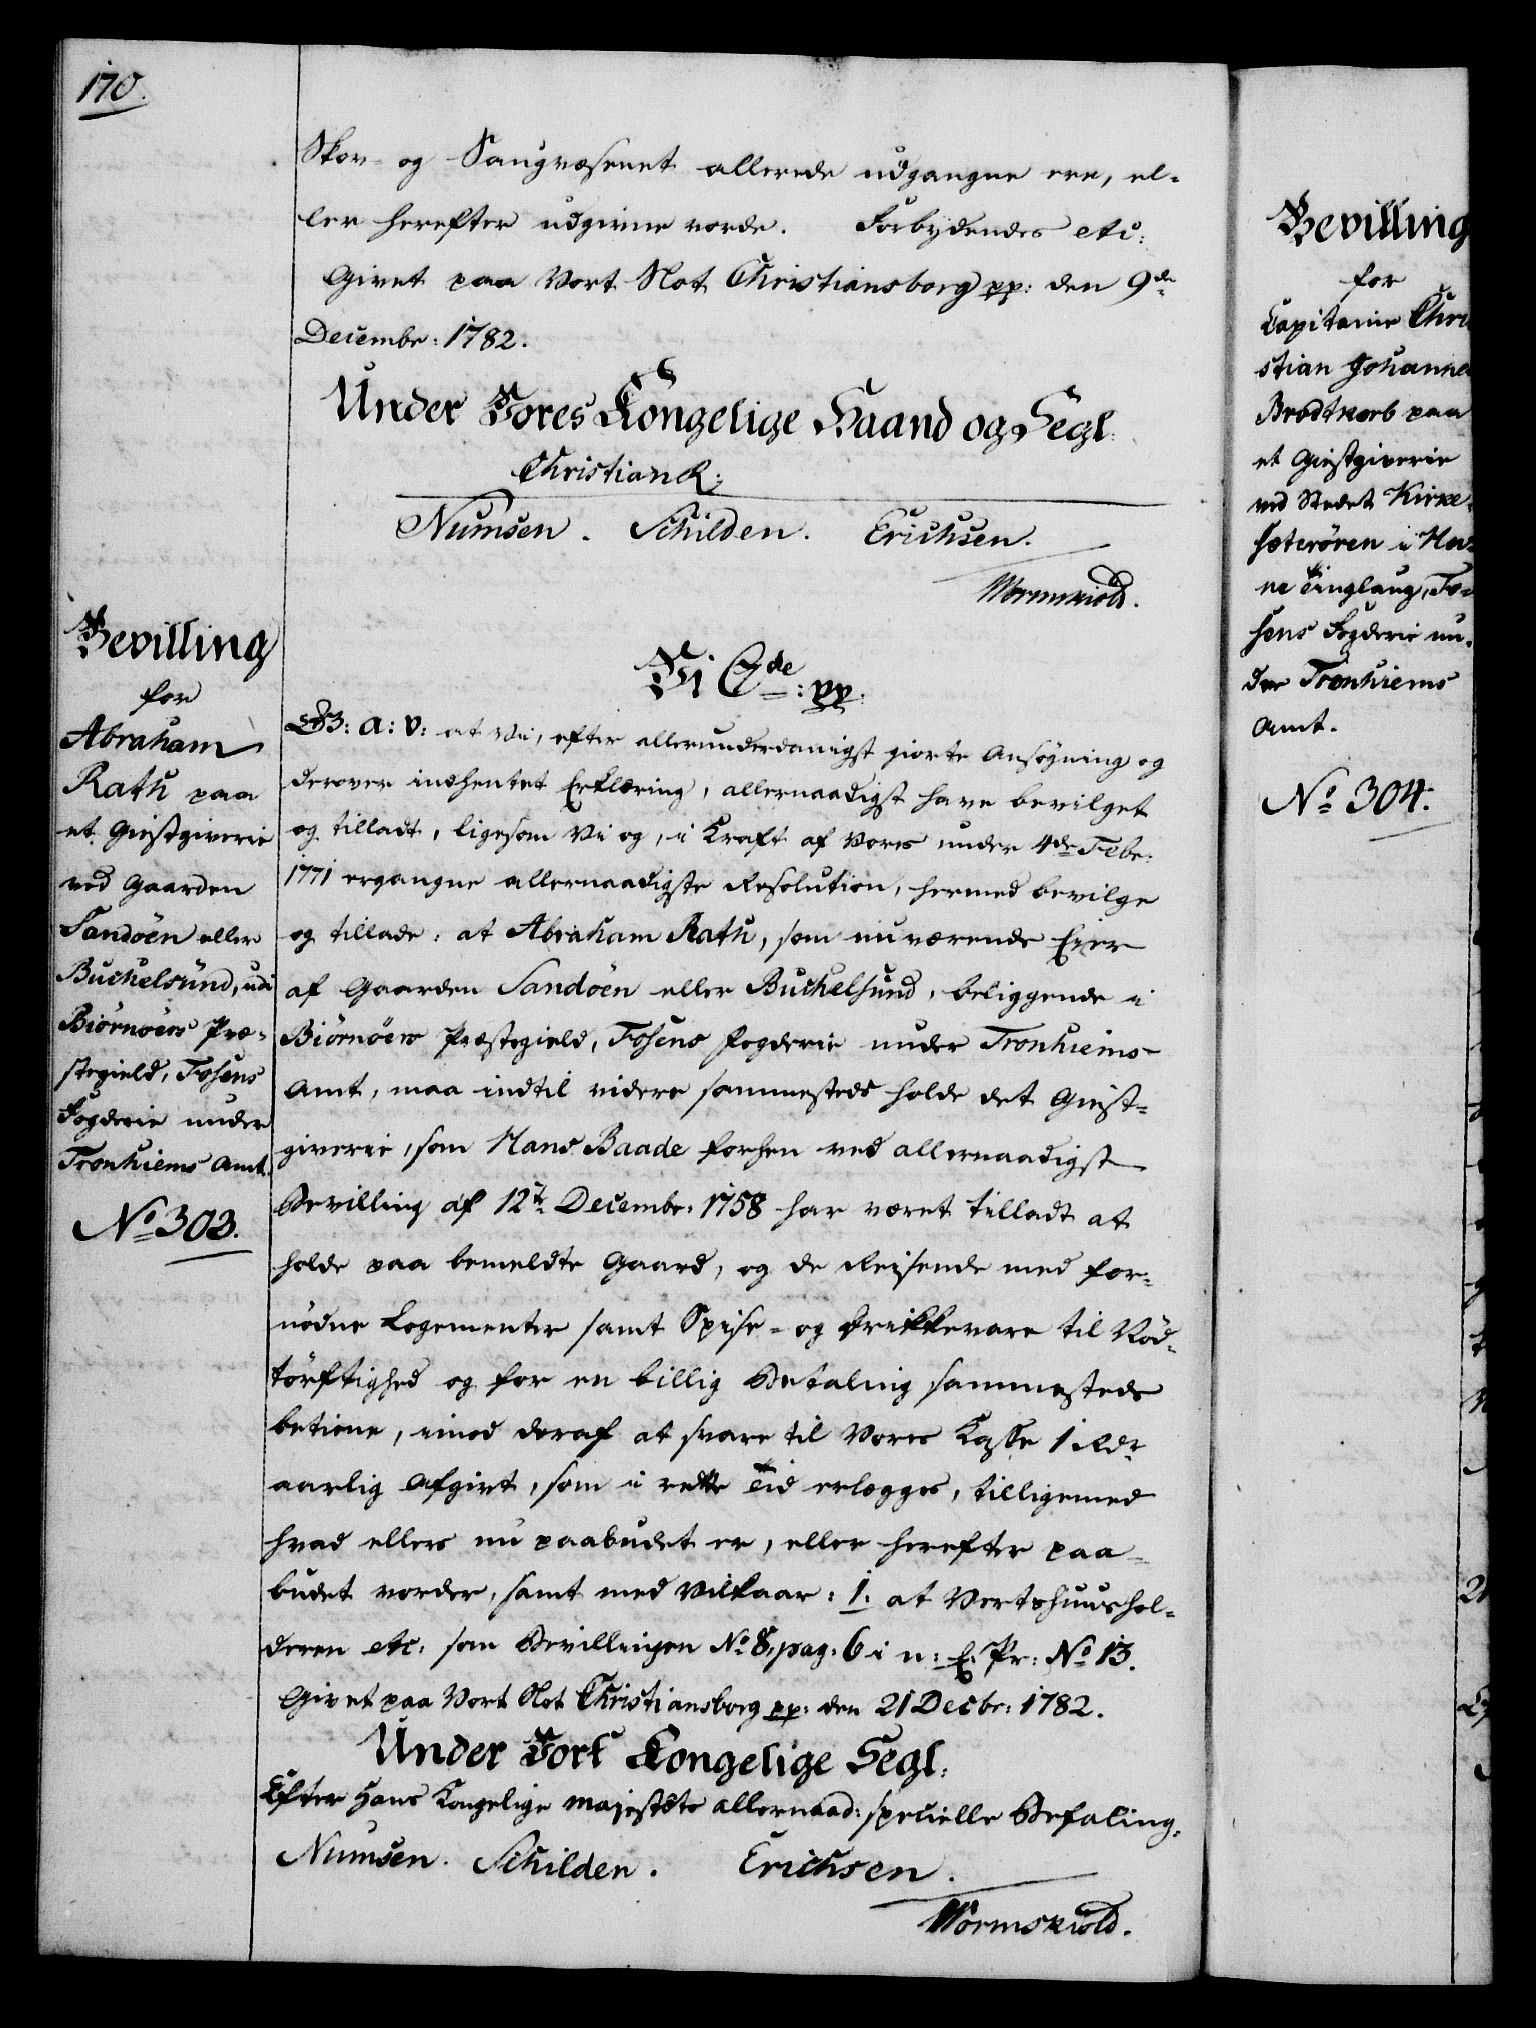 170.
Skov- og Saugvæsenet allerede udgangne ere, el-
ler herefter udgivne vorde. Forbydendes etc:
Givet paa Vort Slot Christiansborg pp: den 9de
Decembr: 1782.
Under Vores Kongelige Haand og Segl.
Christian R:
Numsen. Schilden. Erichsen.
Wormskiold.
Bevilling
for
Abraham
Rath paa
et Giestgiverie
ved Gaarden
Sandöen eller
Buchelsund, udi
Biörnöers Præ-
stegield, Fosens
Fogderie under
Tronhiems Amt.
No 303.
Vi C 7de: pp:
G: a: v: at Vi, efter allerunderdanigst giorte Ansøgning og
derover indhentet Erklæring, allernaadigst have bevilget
og tilladt, ligesom Vi og, i Kraft af Vores under 4de Febr:
1771 ergangne allernaadigste Resolution, hermed bevilge
og tillade: at Abraham Rath, som nuværende Eier
af Gaarden Sandöen eller Buchelsund, beliggende i
Biörnöers Præstegield, Fosens Fogderie under Tronhiems
Amt, maa indtil videre sammesteds holde det Giest-
giverie, som Hans Baade forhen ved allernaadigst
Bevilling af 12te Decembr: 1758 har været tilladt at
holde paa bemeldte Gaard, og de Reisende med for-
nødne Logementer samt Spise- og Drikkevare til Nød-
tørftighed og for en billig Betaling sammesteds
betiene, imod deraf at svare til Vores Kasse 1 Rdr
aarlig Afgivt, som i rette Tid erlægges, tilligemed
hvad ellers nu paabudet er, eller herefter paa-
budet vorder, samt med Vilkaar: 1. at Vertshuushol-
deren etc: som Bevillingen No 8, pag: 6 i n: E. Pr: No 13.
Givet paa Vort Slot Christiansborg pp: den 21 Decbr: 1782.
Under Vort Kongelige Segl.
Efter Hans Kongelige Majestæts allernaad: specielle Befaling.
Numsen. Schilden. Erichsen.
Wormskiold.
Bevilling
for
Capitaine Chri
stian Johannes
Brodtkorb paa
et Giestgiverie
ved Stedet Kirke-
sæterören i Hev-
ne Tinglaug, Fo-
sens Fogderie un-
der Tronhiems
Amt.
No 304.